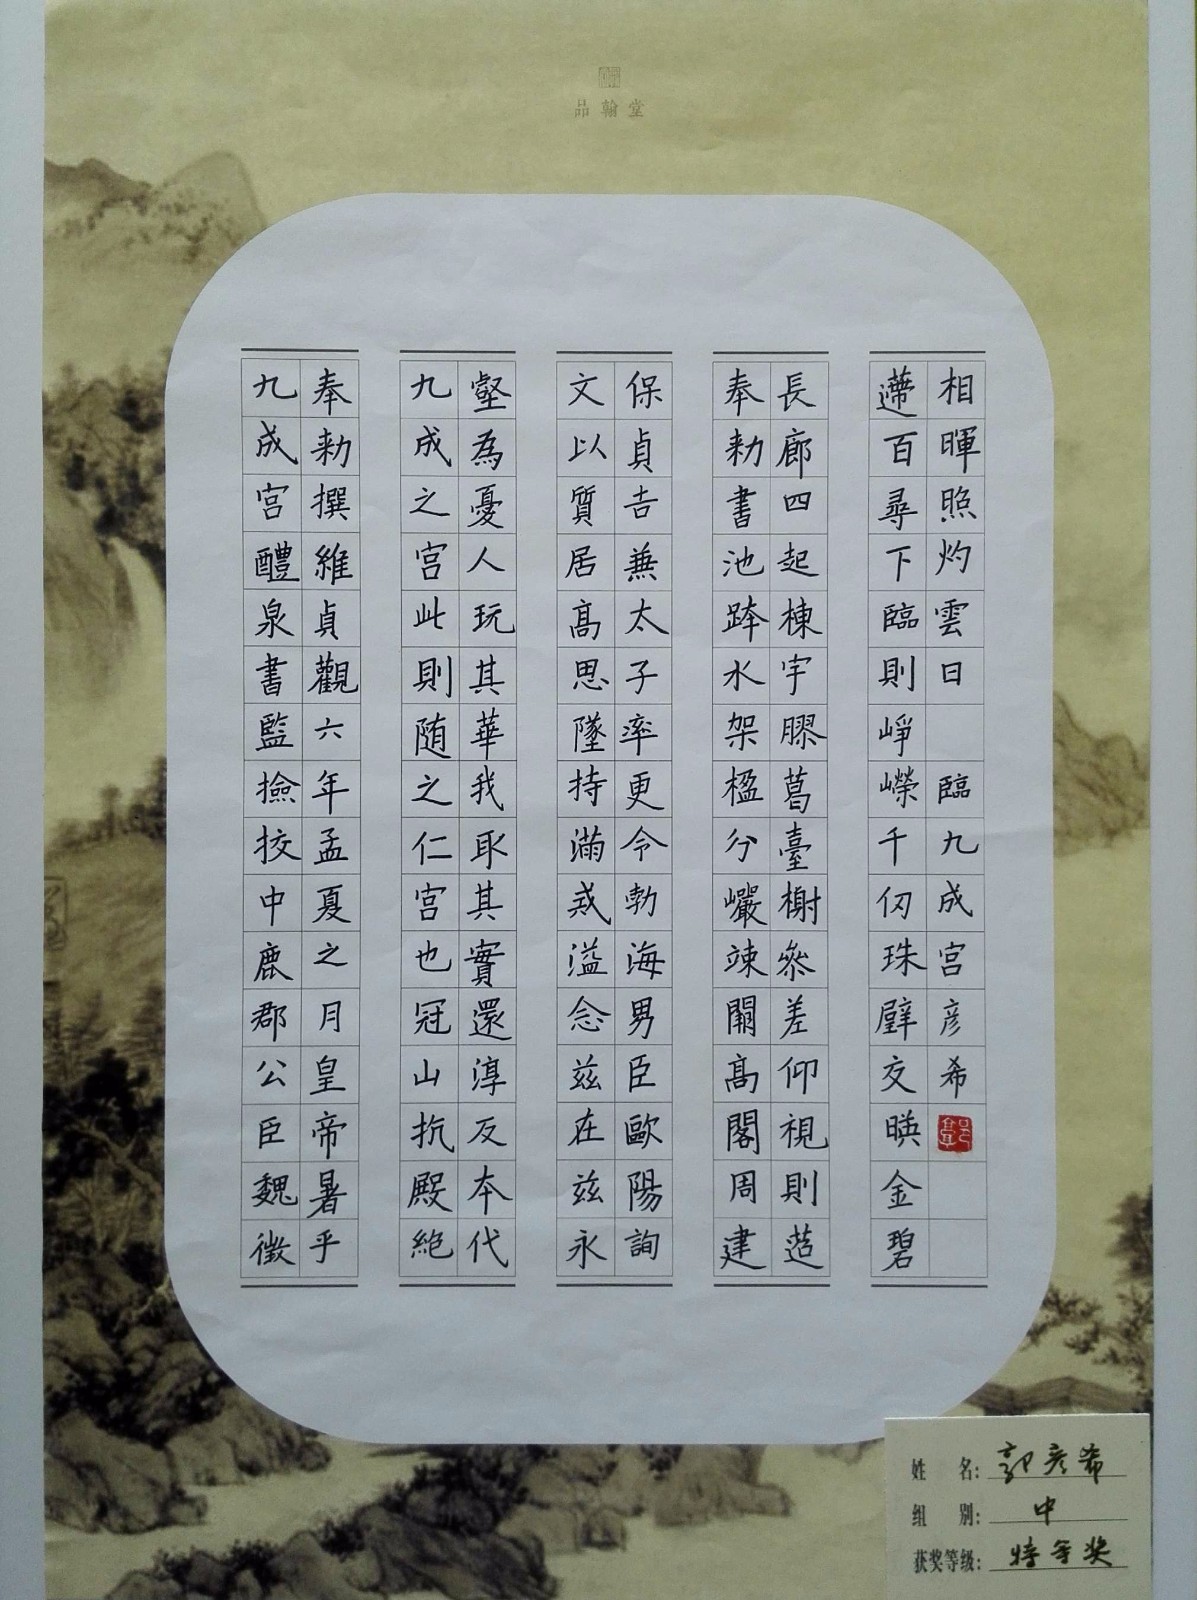 品翰堂
九成宮醴泉書監撿挍中鹿郡公臣魏徵
奉勑撰維貞觀六年孟夏之月皇帝暑乎
九成之宮此則随之仁宮也冠山抗殿絶
壑為憂人玩其華我取其實還淳反本代
文以質居高思墜持滿戒溢念兹在兹永
保貞吉兼太子率更令勃海男臣歐陽詢
奉勑書池跨水架楹分巖竦闕高閣周建
長廊四起棟宇膠葛臺榭參差仰視則迢
遰百尋下臨則崢嶸千仞珠璧交暎金碧
相暉照灼雲日 臨九成宮彦希
姓 名: 郭彦希
组 别: 中
获奖等级: 特等奖